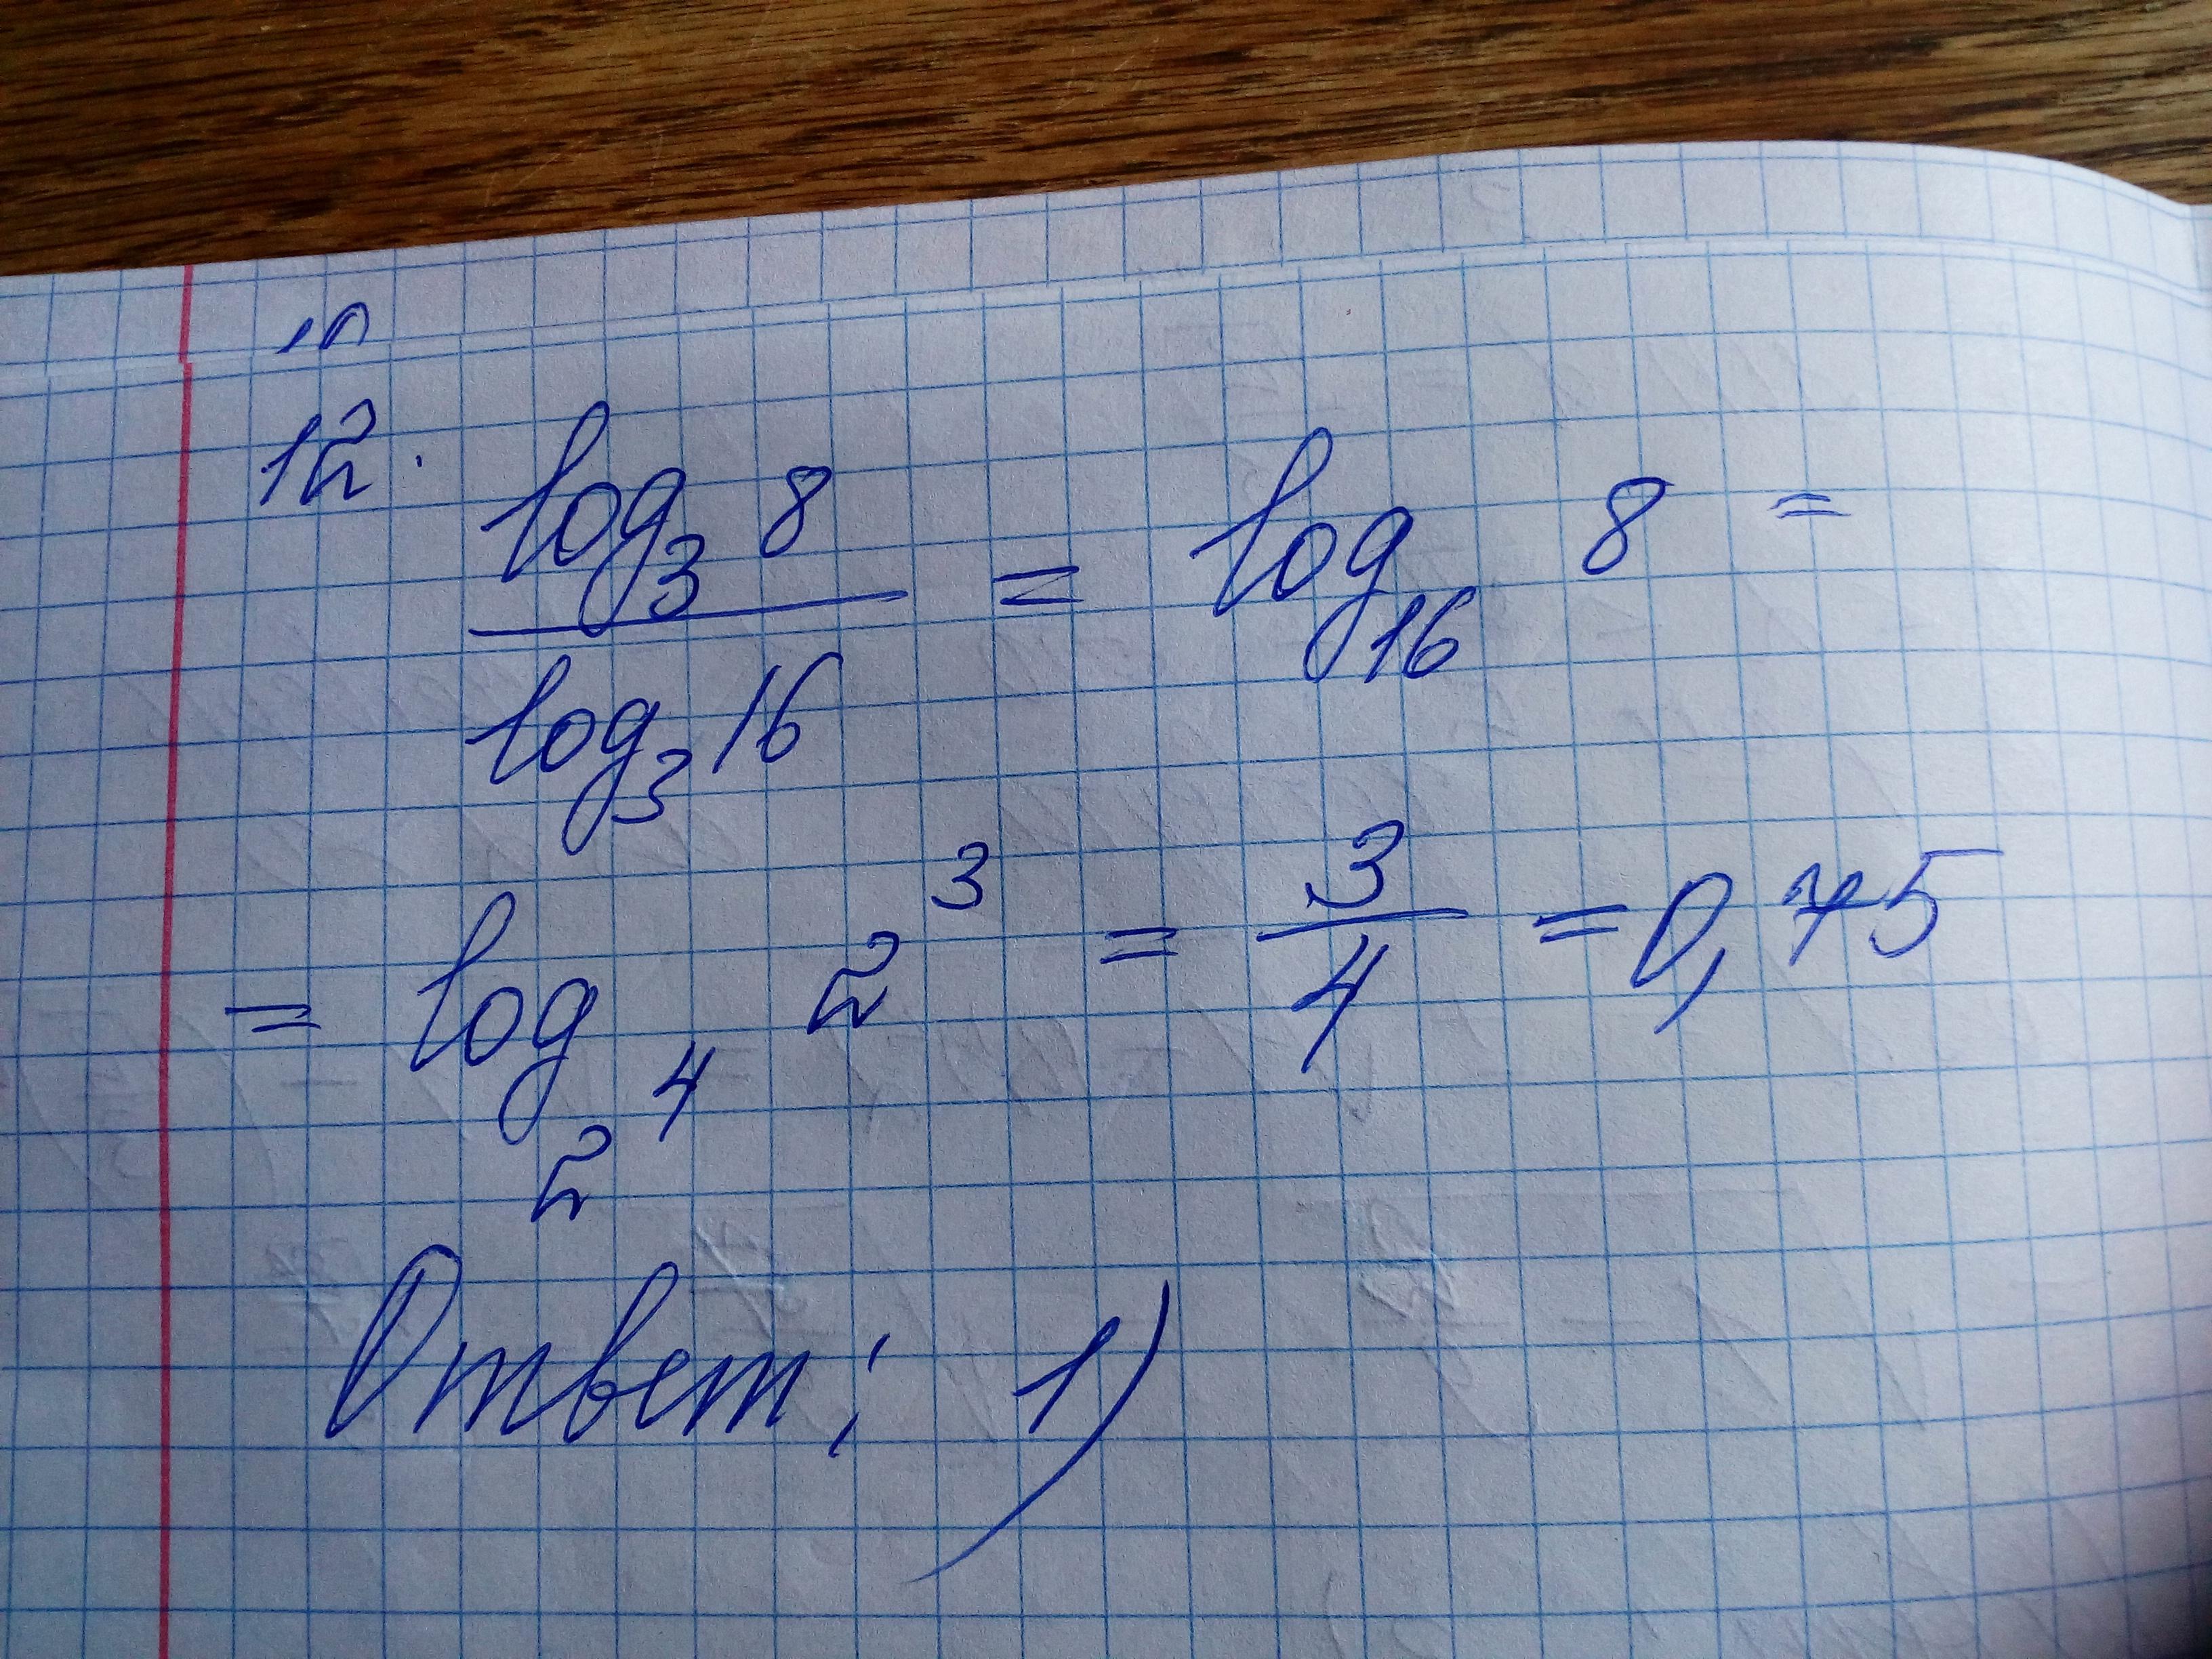 12. log₃ 8 / log₃ 16 = log₁₆ 8 =
= log₂⁴ 2³ = 3/4 = 0,75
Ответ: 1)